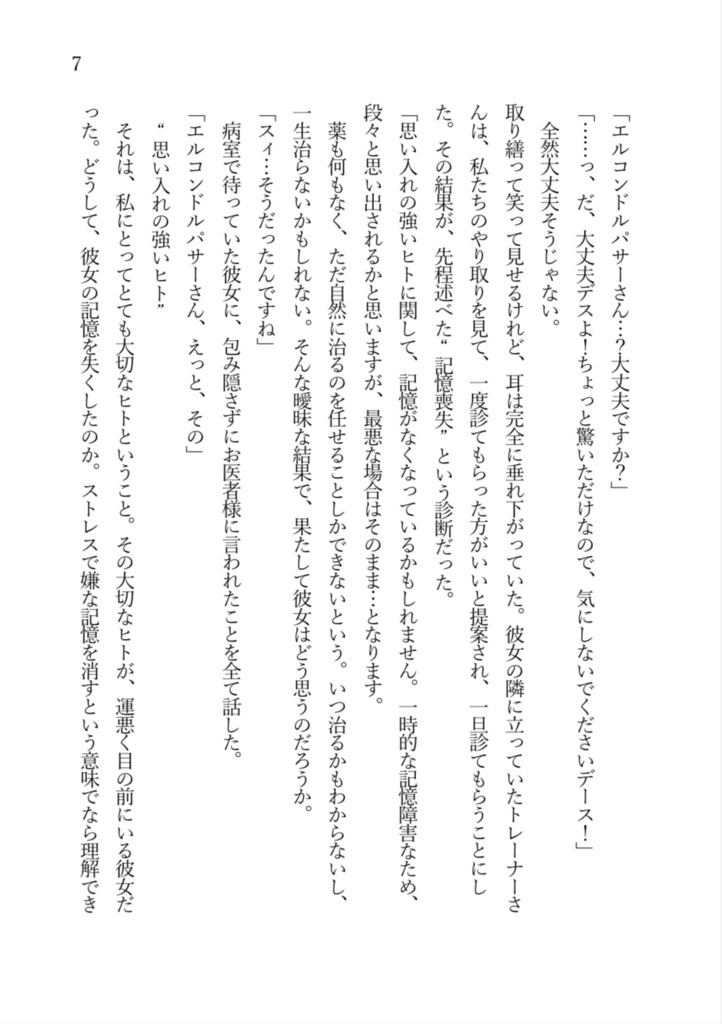 7
「エルコンドルパサーさん…？大丈夫ですか？」
「……っ、だ、大丈夫デスよ！ちょっと驚いただけなので、気にしないでくださいデース！」
全然大丈夫そうじゃない。
取り繕って笑って見せるけれど、耳は完全に垂れ下がっていた。彼女の隣に立っていたトレーナーさ
んは、私たちのやり取りを見て、一度診てもらった方がいいと提案され、一日診てもらうことにし
た。その結果が、先程述べた“記憶喪失”という診断だった。
「思い入れの強いヒトに関して、記憶がなくなっているかもしれません。一時的な記憶障害なため、
段々と思い出されるかと思いますが、最悪な場合はそのまま…となります。
薬も何もなく、ただ自然に治るのを任せることしかできないという。いつ治るかもわからないし、
一生治らないかもしれない。そんな曖昧な結果で、果たして彼女はどう思うのだろうか。
「スィ…そうだったんですね」
病室で待っていた彼女に、包み隠さずにお医者様に言われたことを全て話した。
「エルコンドルパサーさん、えっと、その」
“思い入れの強いヒト”
それは、私にとってとても大切なヒトということ。その大切なヒトが、運悪く目の前にいる彼女だ
った。どうして、彼女の記憶を失くしたのか。ストレスで嫌な記憶を消すという意味でなら理解でき